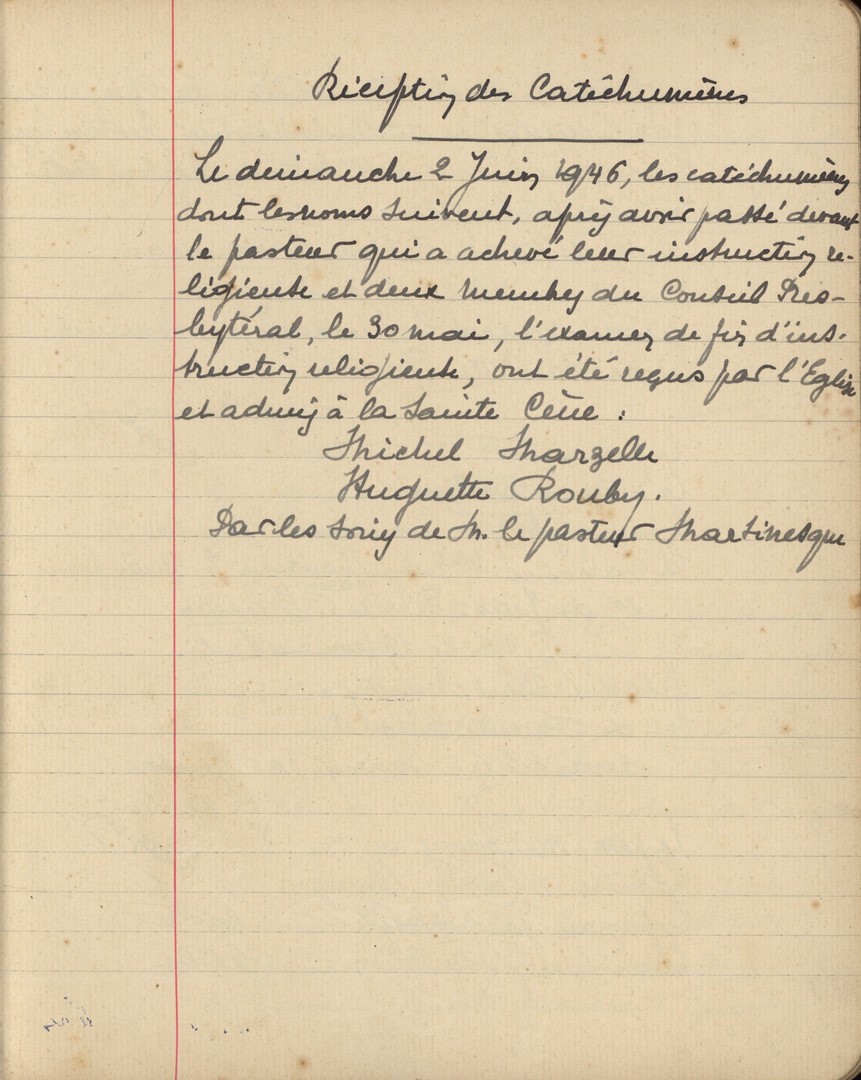 Réception des Catéchumènes
Le dimanche 2 Juin 1946, les catéchumènes
dont les noms suivent, après avoir passé devant
le pasteur qui a achevé leur instruction re-
ligieuse et deux membres du Conseil Pres-
bytéral, le 30 mai, l'examen de fin d'ins-
truction religieuse, ont été reçus par l'Eglise
et admis à la Sainte Cène :
Michel Marzelle
Huguette Rouby.
Par les soins de M. le pasteur Martinesque